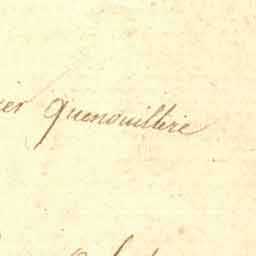 ier quenouillère